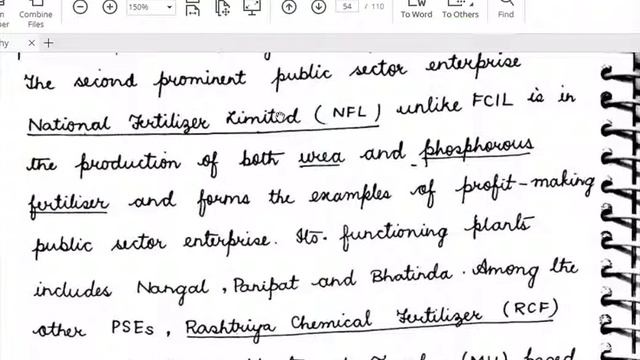 Combine
Files
150%
54 / 110
To Word
To Others
Find
The second prominent public sector enterprise
National Fertilizer Limited (NFL) unlike FCIL is in
the production of both urea and phosphorous
fertiliser and forms the examples of profit-making
public sector enterprise. Its functioning plants
includes Nangal, Panipat and Bhatinda. Among the
other PSEs, Rashtriya Chemical Fertilizer (RCF)
based